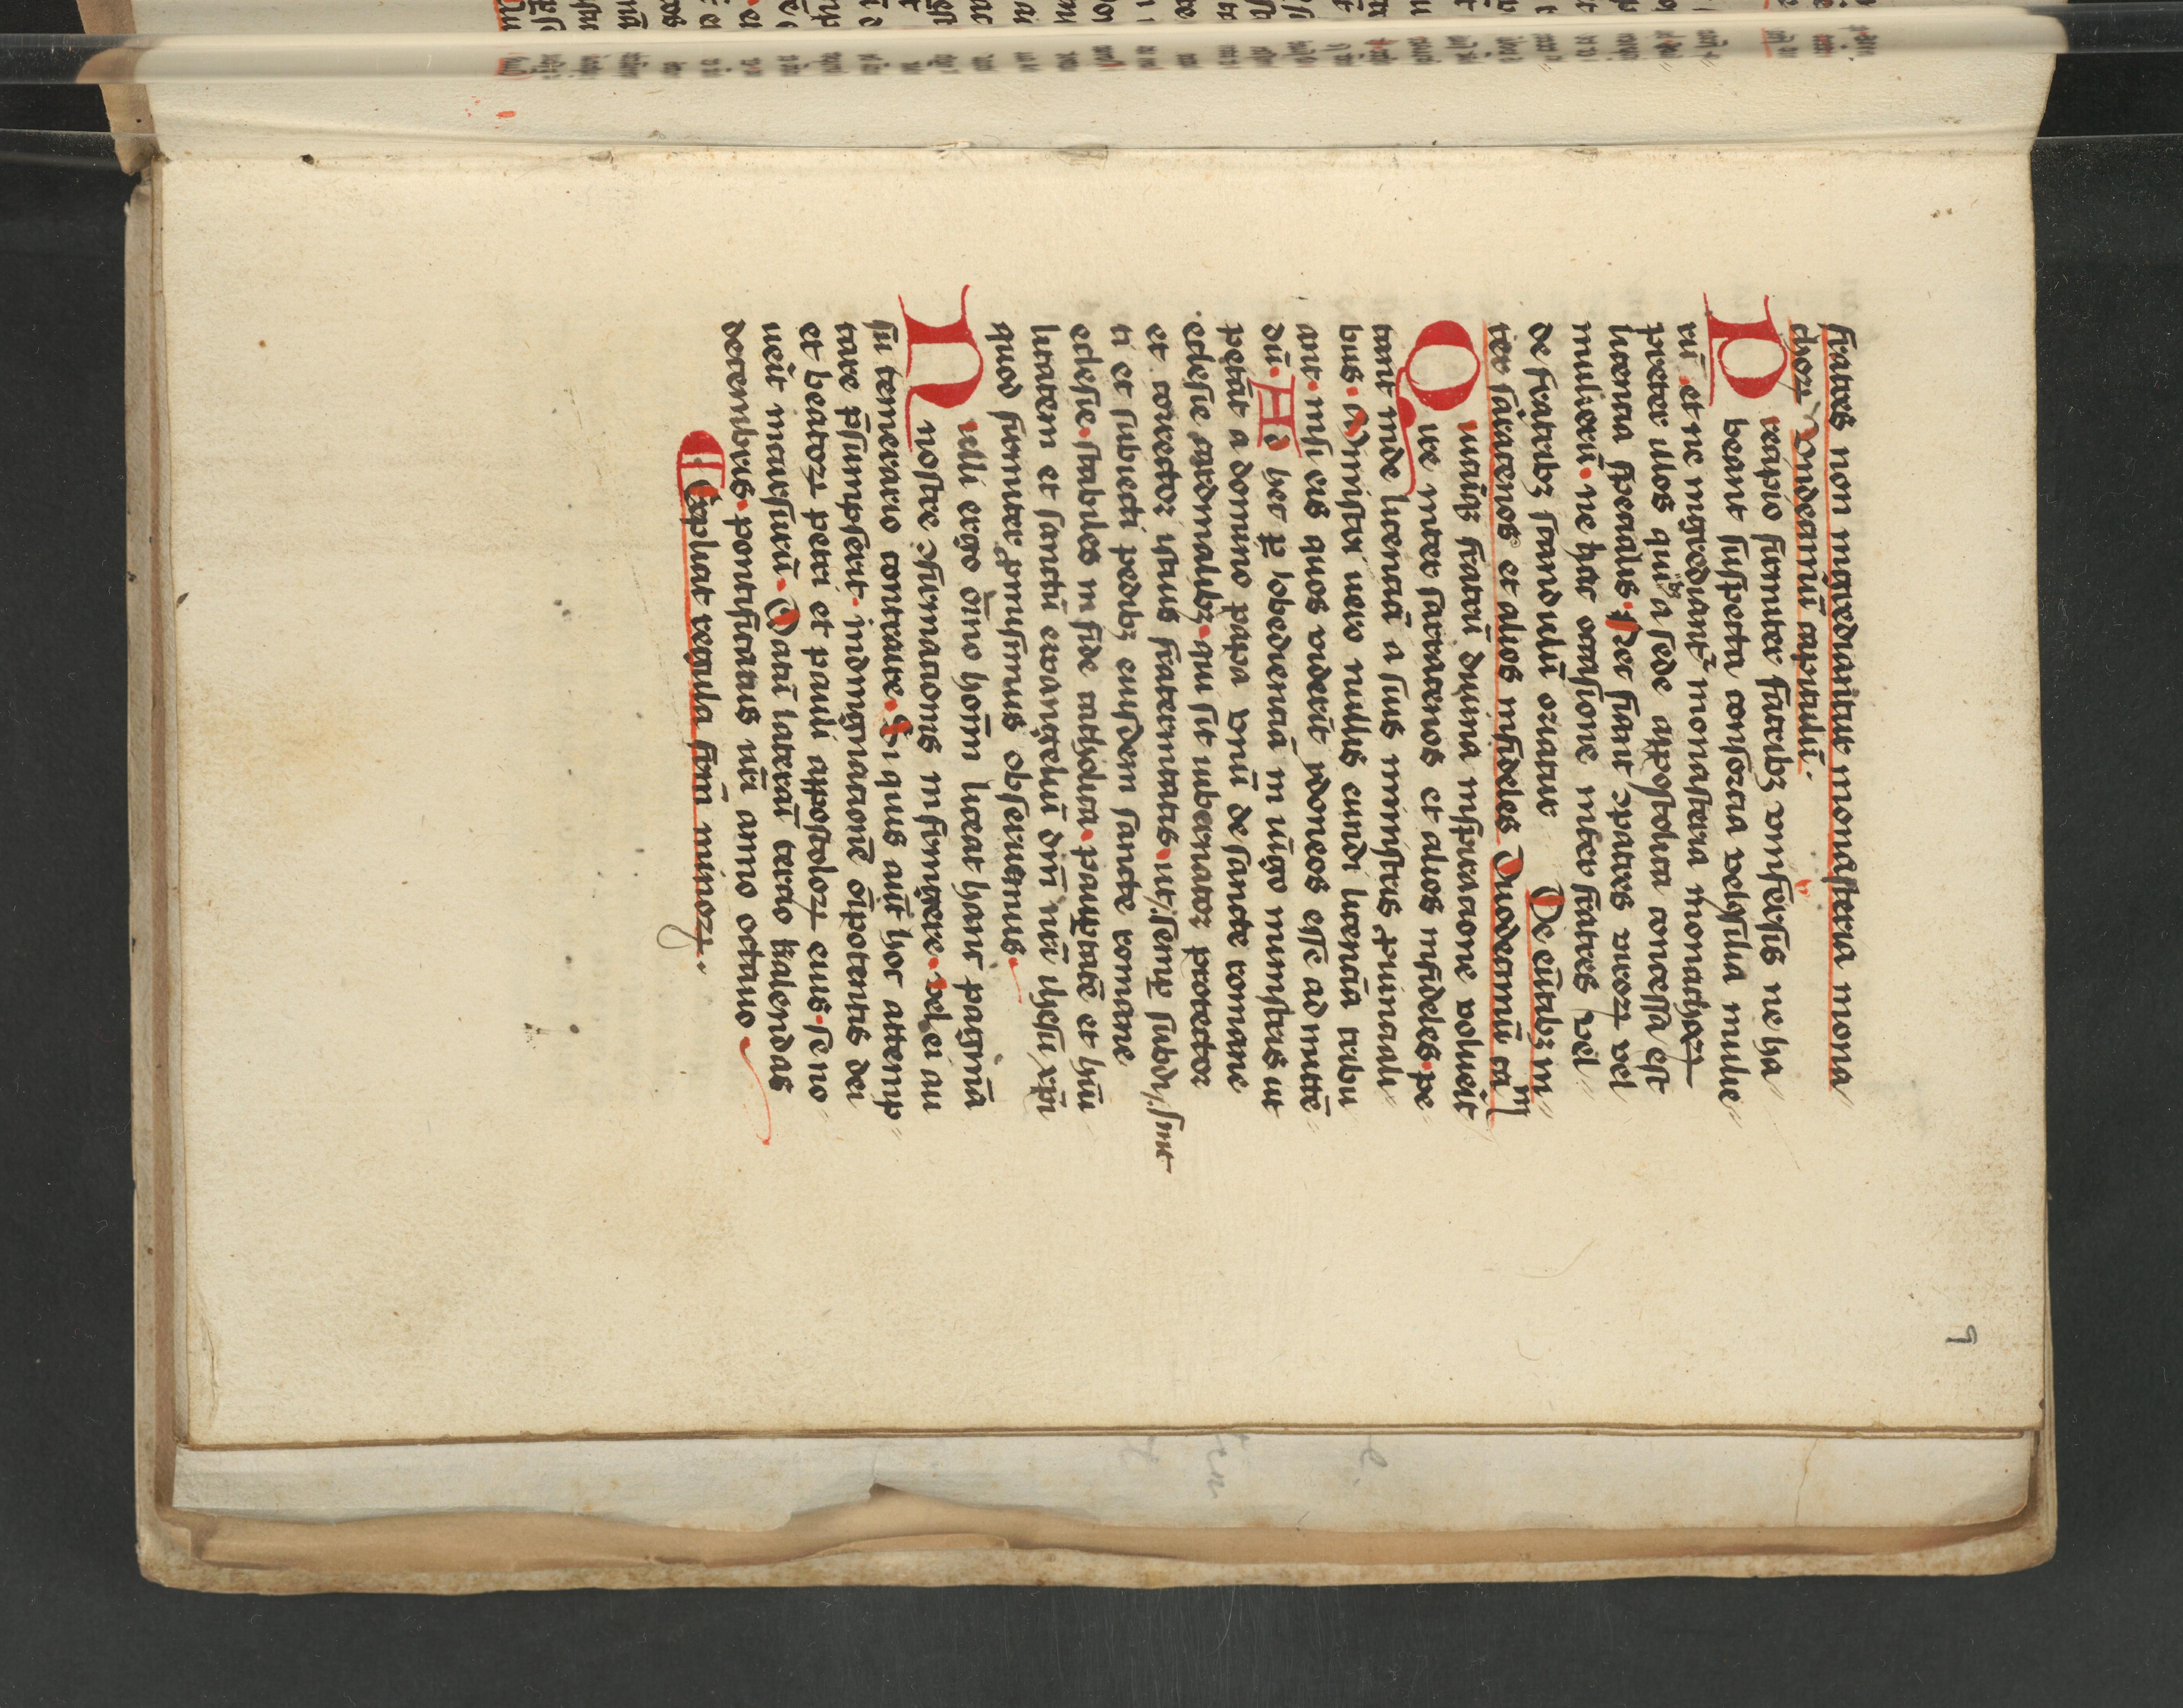 fratres non ingrediantur monasteria mona
choꝝ Vndecimū capitulū.
Precipio firmiter fratribꝫ vniūsis ne ha
beant suspecta consorcia vel ꝯsilia mulie
rū. et ne ingrediant᷑ monasteria monachaꝝ
preter illos quibꝰ a sede appostolica concessa est
licencia specialis. Nec fiant ꝯpatres viroꝝ vel
mulierū. ne hac occasione inter fratres vel
de fratribꝫ scandalū oriatur De eūtibꝫ in
ter saracenos et alios infideles Duodecimū caᵐ
Quicūqꝫ fratrū diuina inspiracione voluerīt
ire inter sarracenos et alios infideles. pe
tant inde licenciā a suis ministris ꝓuinciali
bus. Ministri uero nullis eundi licenciā tribu
ant. nisi eis quos viderīt ydoneos esse ad mittē
dū. Ad hec ꝑ obedienciā iniūgo ministris ut
petāt a domino papa vnū de sancte romane
ecclesie cardinalibꝫ. qui sit gubernator protector
et corrector istius fraternitatis. ut semꝑ subditi
et subiecti pedibꝫ eiusdem sancte romane
ecclesie. stabiles in fide catholica. paupertatē et hūi
litatem et sanctū ewangeliū dn̄i nr̄i ihesu xp̄i
quod firmiter ꝓmisimus obseruemus.
Nulli ergo om̄no hom̄ liceat hanc paginā
nostre ꝯfirmacionis infringere. vel ei au
su temerario contraire. Si quis aūt hoc attemp
tare p̄sumpserit. indignacionē om̄ipotentis dei
et beatoꝝ petri et pauli appostoloꝝ eius. se no
uerit incursurū. Datū laterāū tercio kalendas
decembris. pontificatus nr̄i anno octauo.
Explicit regula frm̄ minoꝝ.
9